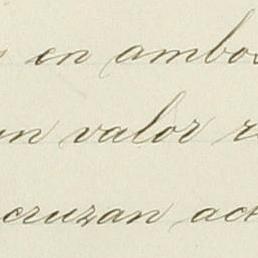 en ambos
un valor
cruzan